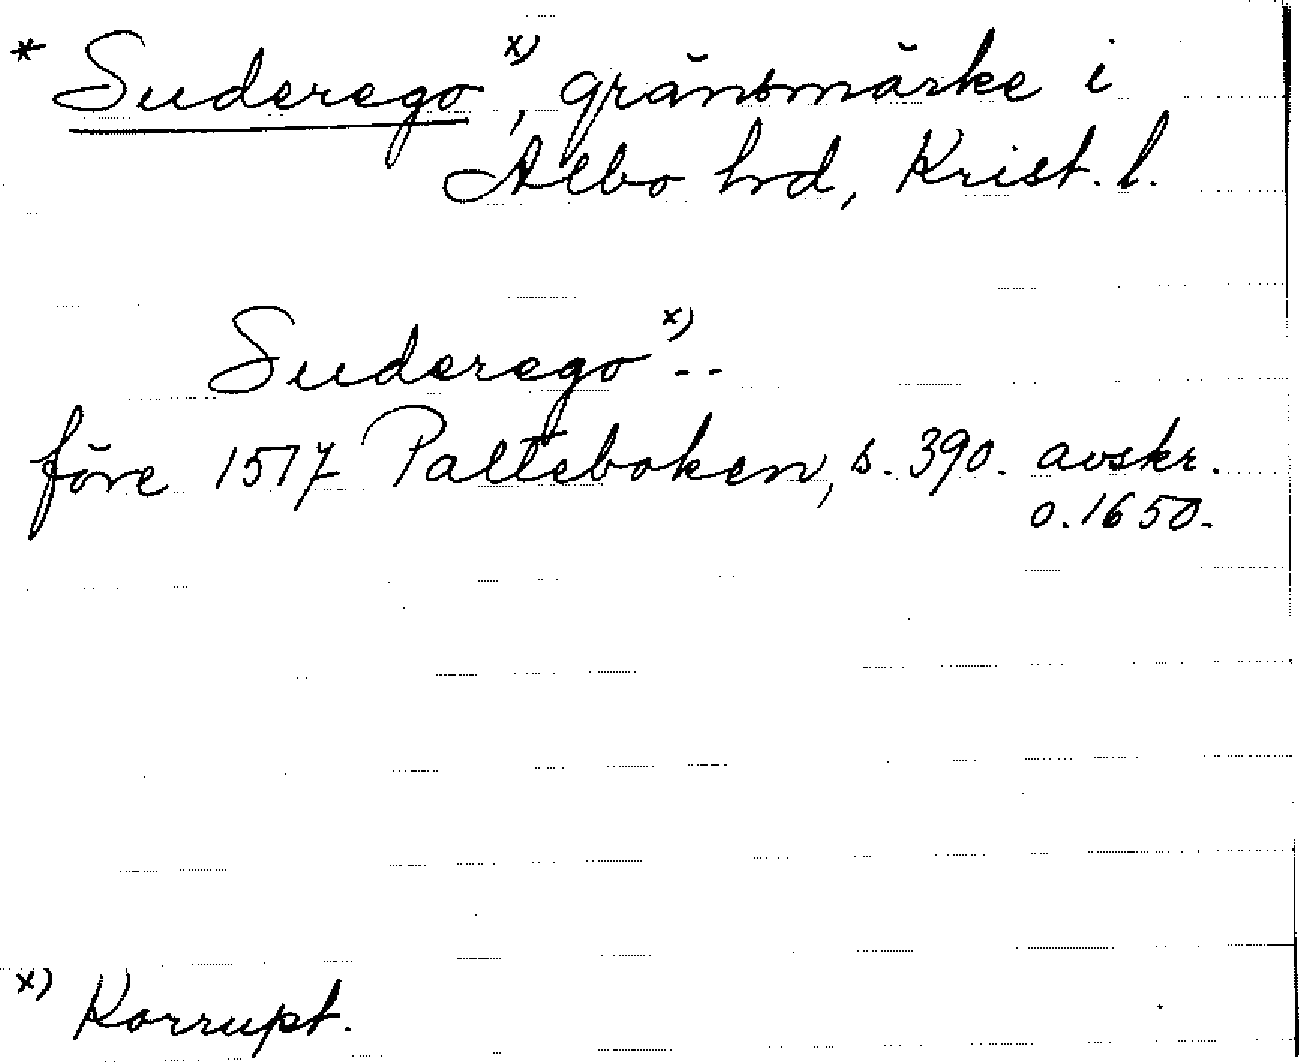 * Suderego x), gränsmärke i
Albo hrd, Krist. l.
Suderego x) --
före 1517 Palteboken, s. 390. avskr.
o. 1650.
x) Korrupt.